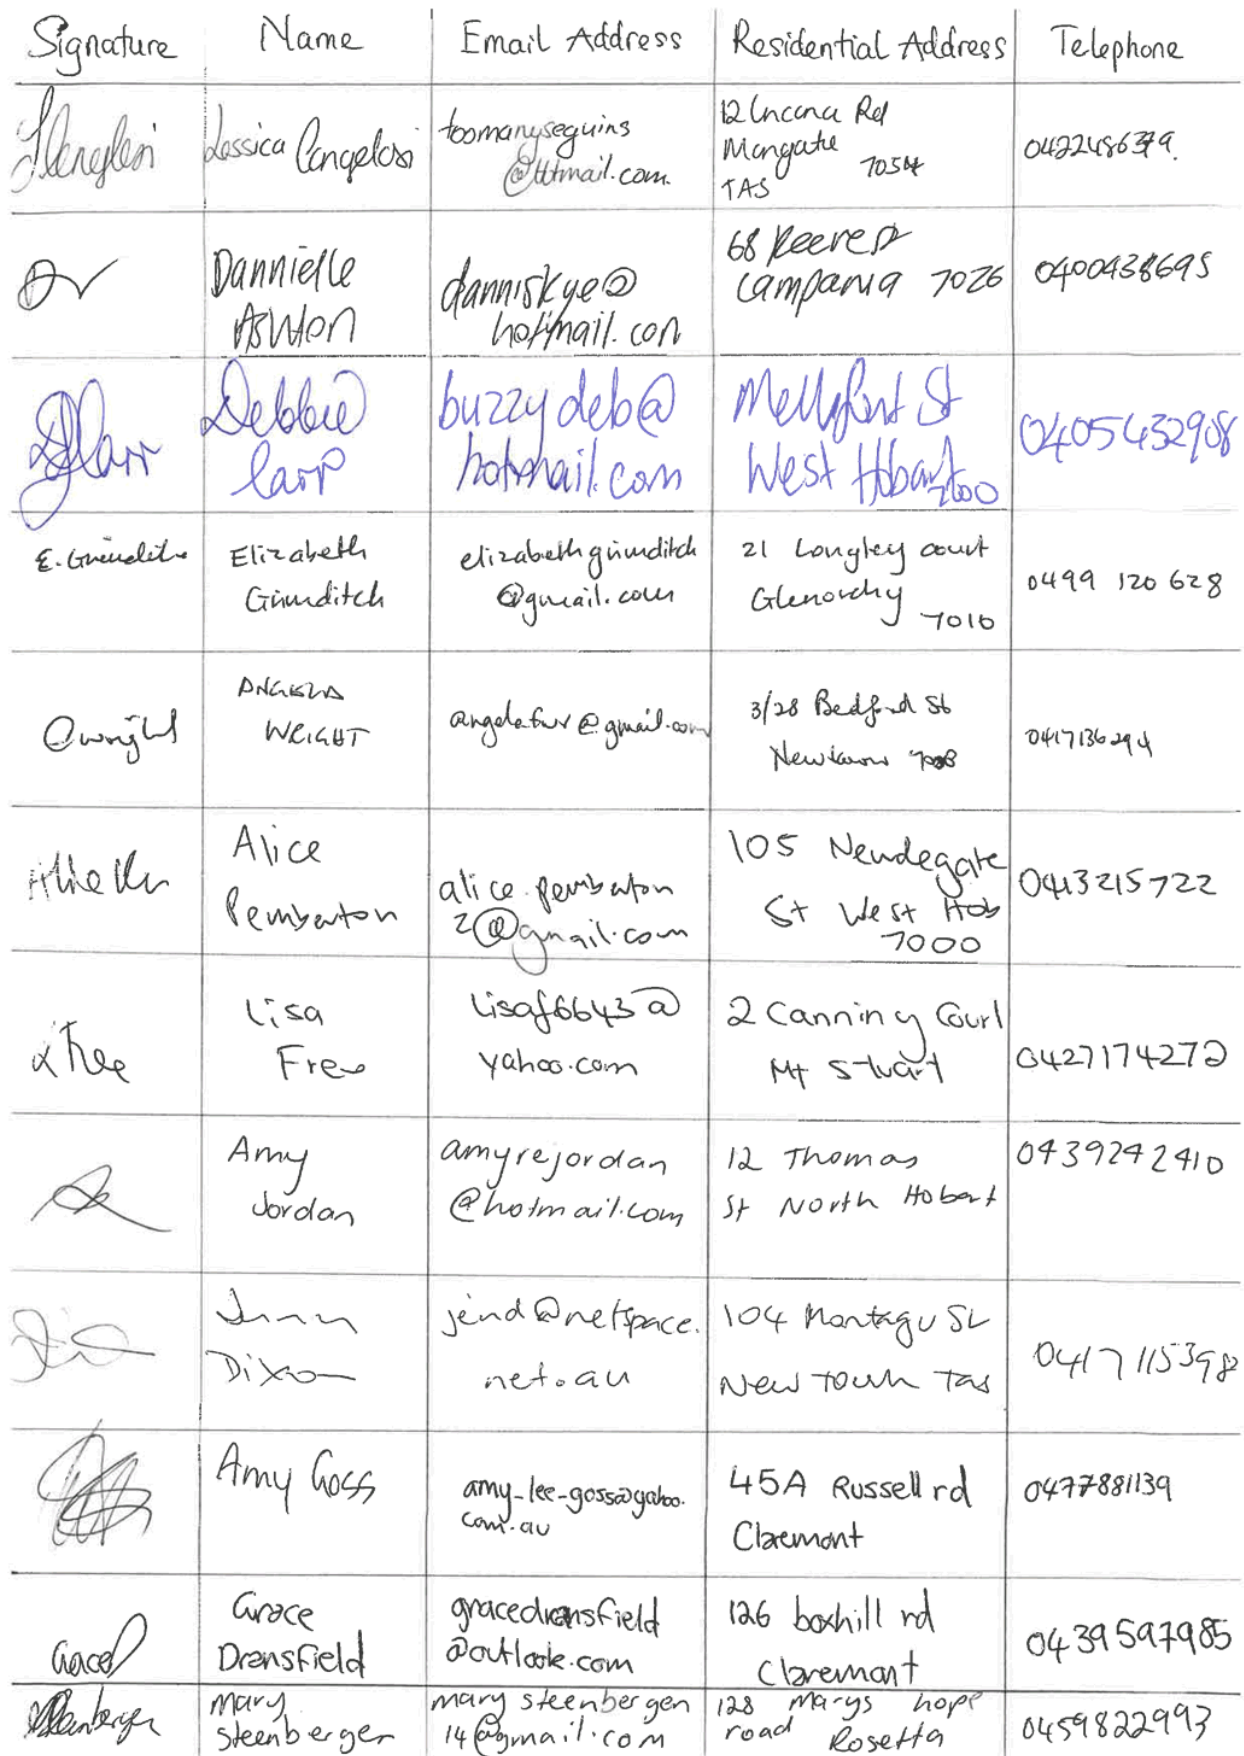 Signature Name Email Address Residential Address Telephone
Jessica Cangelosi
toomanyseguins
@hotmail.com.
12 Incana Rd
Mangate
TAS 7054
0422486379.
Dannielle
Ashton
danniskye@
hotmail.com
68 Reeve St
Campania 7026
0400438695
Debbie
Carr
buzzydeb@
hotmail.com
Mellifont St
West Hobart 7000
0405432908
E. Grunditch
Elizabeth
Grunditch
elizabethgrunditch
@gmail.com
21 Longley court
Glenorchy
7010
0499 120 628
Awright
ANGELA
WRIGHT
@gmail.com
3/28 Bedford St
Newtown 7008
0417136294
Alice
Pemberton
alice.pemberton
2@gmail.com
105 Newdegate
St West Hob
7000
0413215722
LFree
Lisa
Free
lisaf6643@
yahoo.com
2 Canning Court
Mt Stuart
0427174272
Amy
Jordan
amyrejordan
@hotmail.com
12 Thomas
St North Hobart
0439242410
Dixon
jend@netspace.
net.au
104 Montagu St
New Town Tas
0417115398
Amy Goss
amy-lee-goss@yahoo.
com.au
45A Russell rd
Claremont
0477881139
GraceD
Grace
Dransfield
gracedransfield
@outlook.com
126 boxhill rd
Claremont
0439597985
Mary
Steenbergen
mary steenbergen
14@gmail.com
128 Marys hope
road Rosetta
0459822993